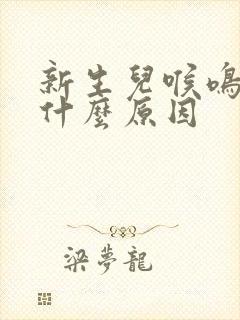 新生兒喉鳴
什麼原因
梁夢龍